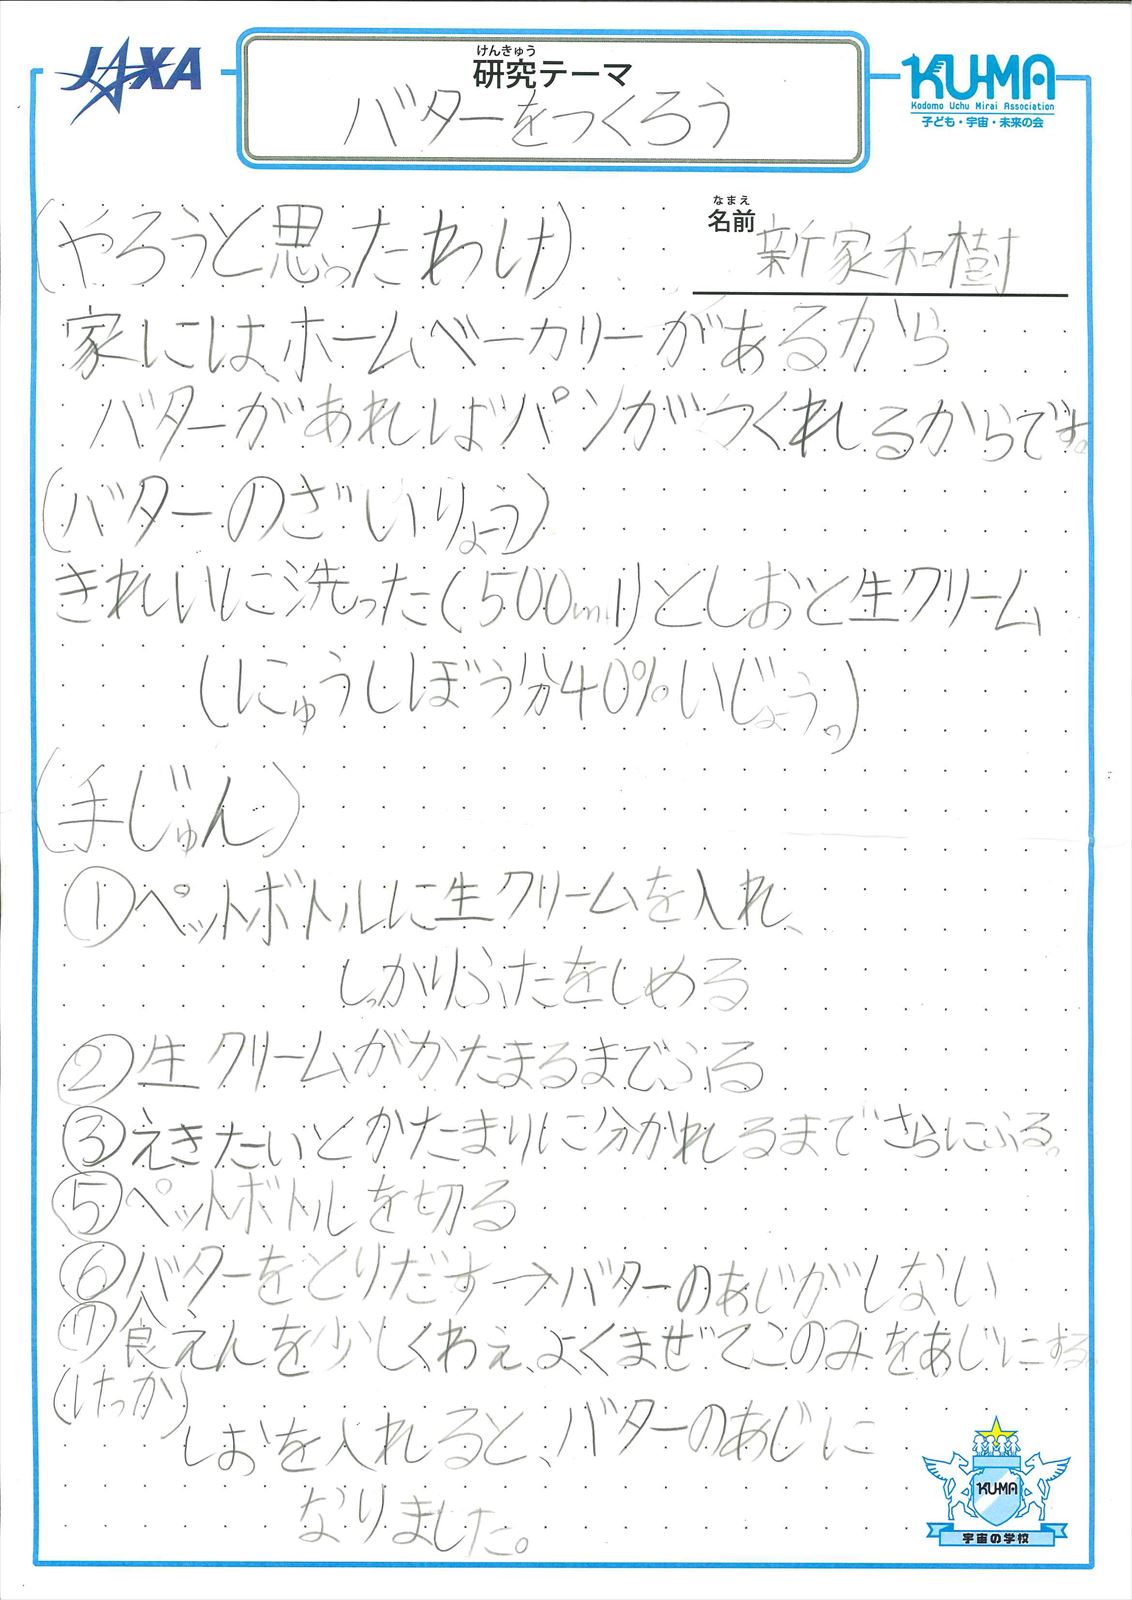 JAXA
けんきゅう
研究テーマ
バターをつくろう
KU-MA
Kodomo Uchu Mirai Association
子ども・宇宙・未来の会
なまえ
名前
新家和樹
(やろうと思ったわけ)
家には、ホームベーカリーがあるから
バターがあればパンがつくれるからです。
(バターのざいりょう)
きれいに洗った(500ml)としおと生クリーム
(にゅうしぼう分40%いじょう。)
(手じゅん)
①ペットボトルに生クリームを入れ、
しっかりふたをしめる
②生クリームがかたまるまでふる
③えきたいとかたまりに分かれるまでさらにふる。
⑤ペットボトルを切る
⑥バターをとりだす→バターのあじがしない
⑦食えんを少しくわえ、よくまぜてこのみをあじにする
(けっか)
しおを入れると、バターのあじに
なりました。
KU-MA
宇宙の学校